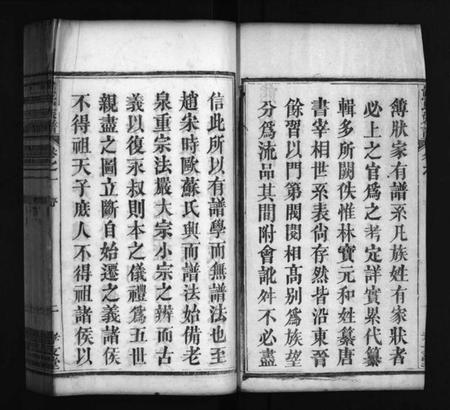 簿狀家有譜系凡族姓有家狀者
必上之官爲之考定詳實累代纂
輯多所闕佚惟林寶元和姓纂唐
書宰相世系表尙存然皆沿東晉
餘習以門第閥閱相高别爲族望
分爲流品其間附會訛舛不必盡
信此所以有譜學而無譜法也至
趙宋時歐蘇氏興而譜法始備老
泉重宗法嚴大宗小宗之辨而古
義以復永叔則本之儀禮爲五世
親盡之圖立斷自始遷之義諸侯
不得祖天子庶人不得祖諸侯以